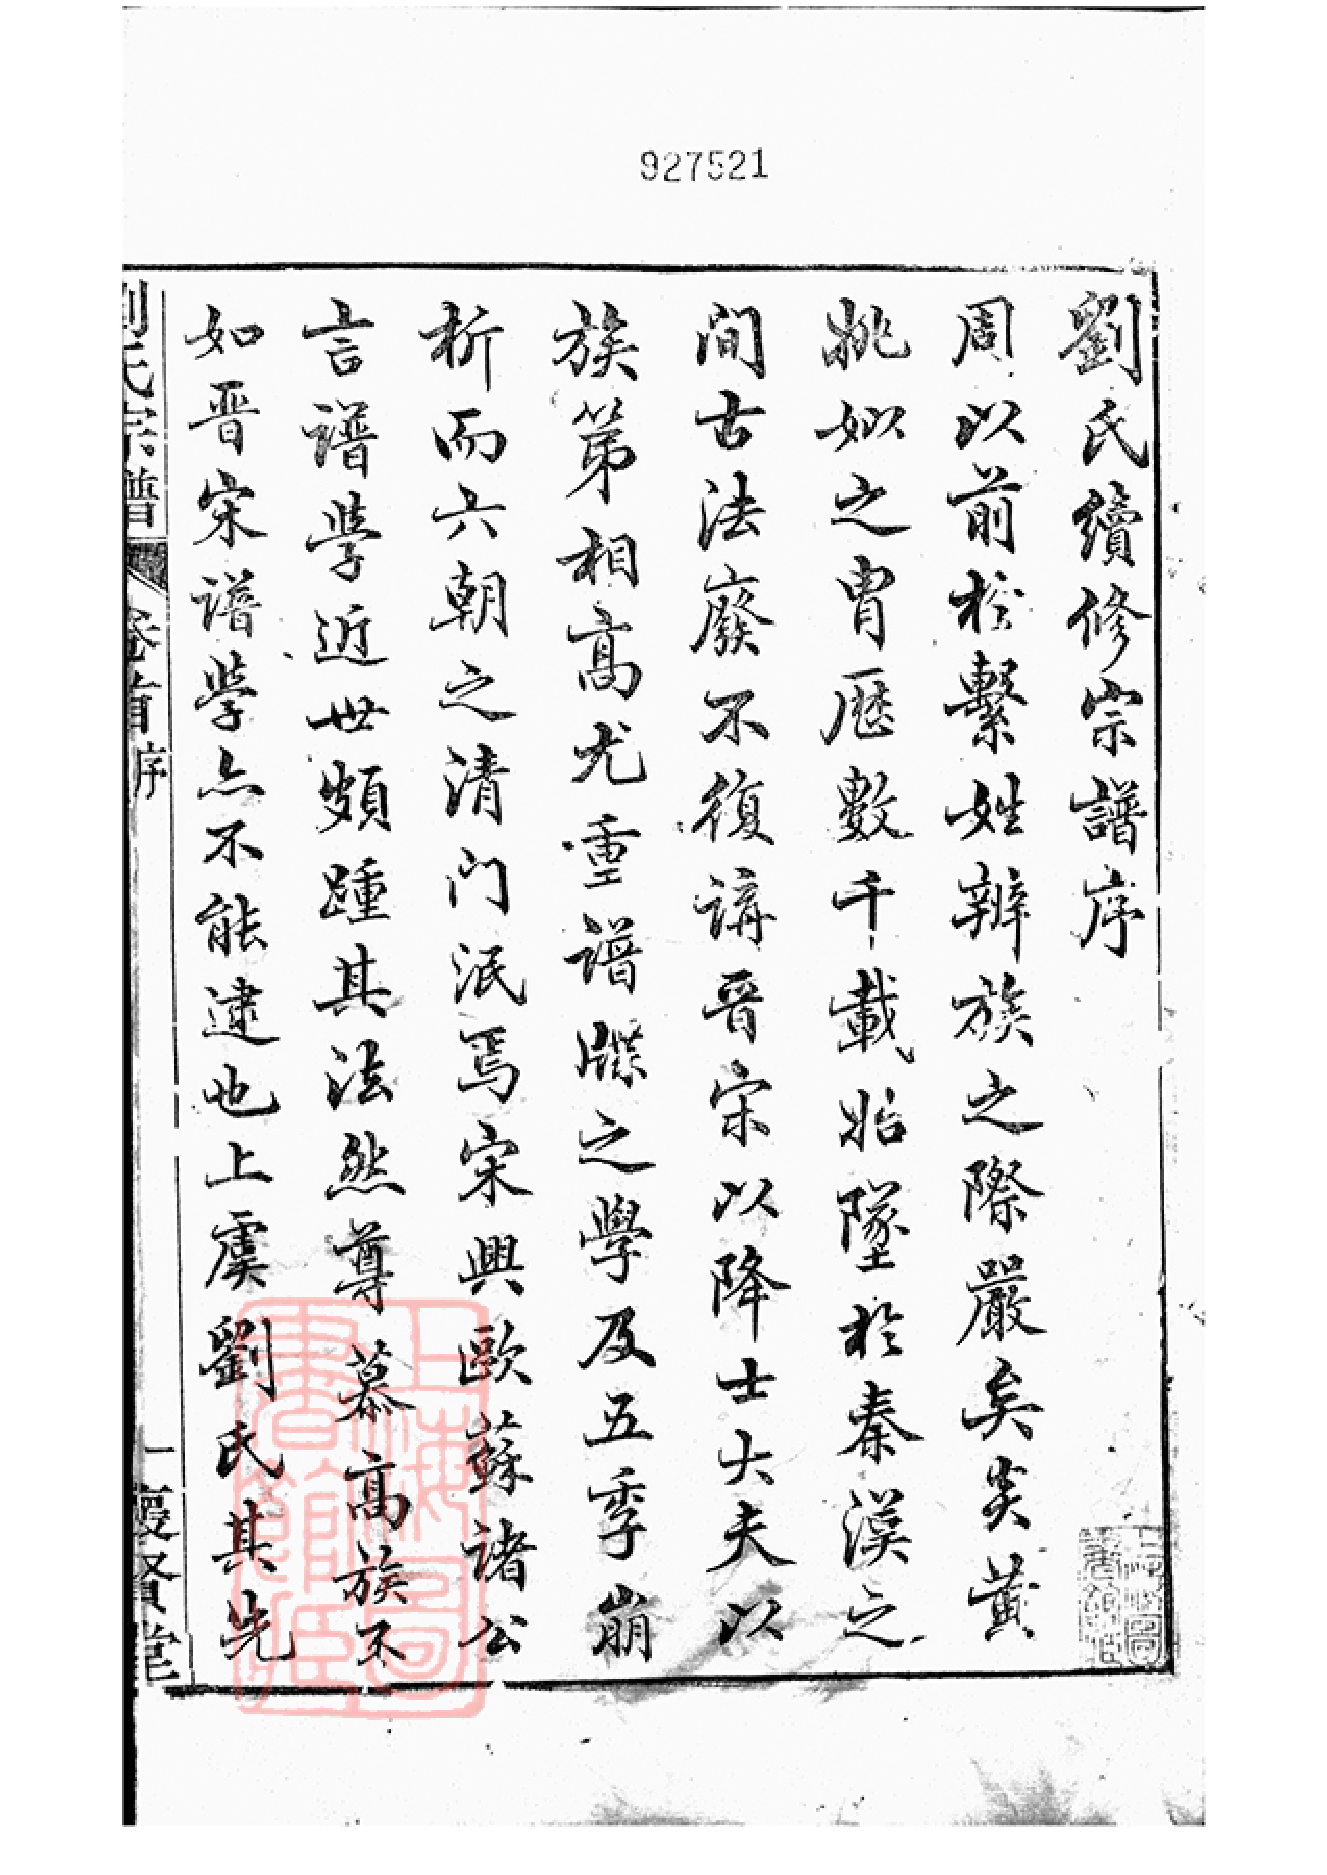 927521
劉氏續修宗譜序
周以前於繫姓辨族之際嚴矣炎黃
姚姒之胄歷數千載始墜於秦漢之
間古法廢不復講晉宋以降士大夫以
族第相高尤重譜牒之學及五季崩
析而六朝之清門泯焉宋興歐蘇諸公
言譜學近世頗踵其法然尊慕高族不
如晉宋譜學亦不能逮也上虞劉氏其先
劉氏宗譜 卷首 序 一 賢堂
上海圖書館藏